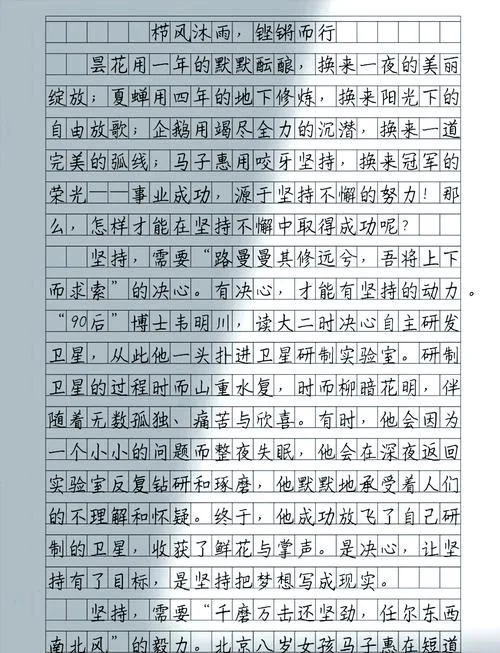 栉风沐雨，铿锵而行
昙花用一年的默默酝酿，换来一夜的美丽
绽放；夏蝉用四年的地下修炼，换来阳光下的
自由放歌；企鹅用竭尽全力的沉潜，换来一道
完美的弧线；马子惠用咬牙坚持，换来冠军的
荣光——事业成功，源于坚持不懈的努力！那
么，怎样才能在坚持不懈中取得成功呢？
坚持，需要“路曼曼其修远兮，吾将上下
而求索”的决心。有决心，才能有坚持的动力。
“90后”博士韦明川，读大二时决心自主研发
卫星，从此他一头扑进卫星研制实验室。研制
卫星的过程时而山重水复，时而柳暗花明，伴
随着无数孤独、痛苦与欣喜。有时，他会因为
一个小小的问题而整夜失眠，他会在深夜返回
实验室反复钻研和琢磨，他默默地承受着人们
的不理解和怀疑。终于，他成功放飞了自己研
制的卫星，收获了鲜花与掌声。是决心，让坚
持有了目标，是坚持把梦想写成现实。
坚持，需要“千磨万击还坚劲，任尔东西
南北风”的毅力。北京八岁女孩马子惠在短道